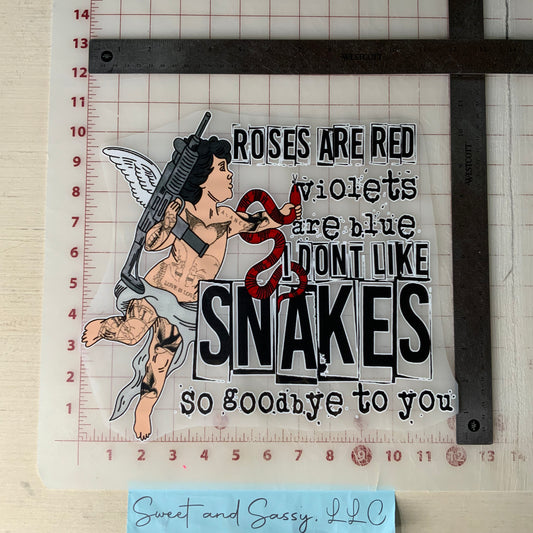 ROSES ARE RED
violets
are blue
I DONT LIKE
SNAKES
so goodbye to you
Sweet and Sassy, LLC
WESTCOTT
WESTCOTT
14
13
12
11
10
9
8
7
6
5
4
3
2
1
1 2 3 4 5 6 7 8 9 10 11 12 13 14